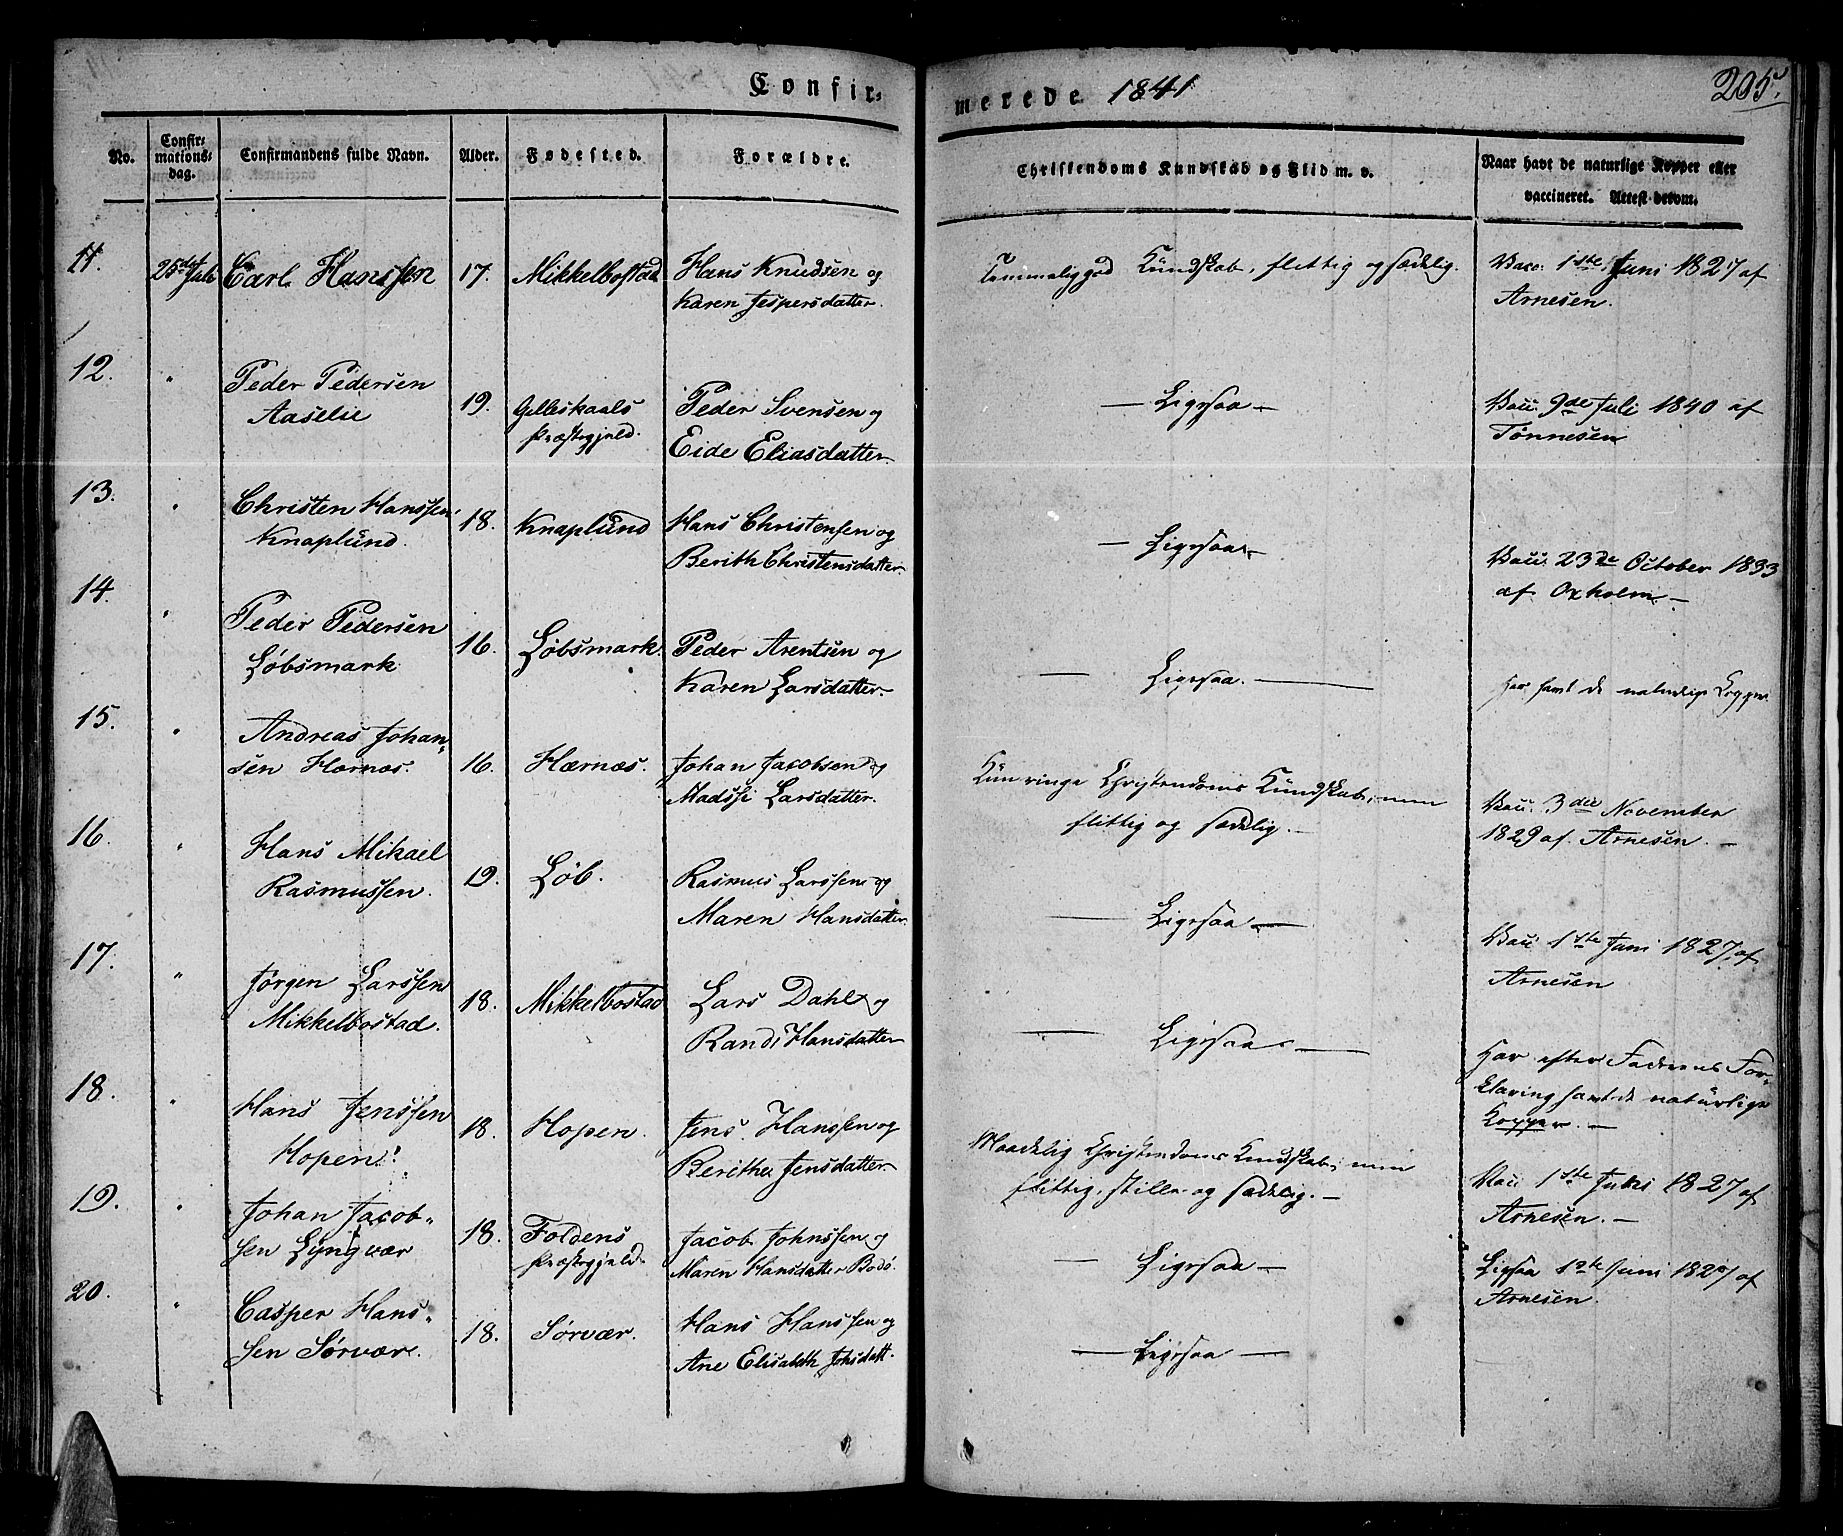 Confir-
merede 1841
205.
No.
Confir-
mations-
dag.
Confirmandens fulde Navn.
Alder.
Fødested.
Forældre.
Christendoms Kundskab og Flid m. v.
Naar havt de naturlige Kopper eller
vaccineret. Attest derom.
11.
25de Juli
Carl Hanssen
17.
Mikkelbostad
Hans Knudsen og
Karen Jespersdatter.
Temmelig god Kundskab, flittig og sædelig.
Vacc. 1ste Juni 1827 af
Arnesen.
12.
"
Peder Pedersen
Aaselie
19.
Gilleskaals
Præstegjeld.
Peder Svensen og
Eide Eliasdatter
— Ligesaa —
Vacc. 9de Juli 1840 af
Tønnesen
13.
"
Christen Hanssen
Knaplund.
18.
Knaplund
Hans Christensen og
Berith Christensdatter
— Ligesaa —
Vacc. 23de October 1833
af Oxholm. —
14.
"
Peder Pedersen
Løbsmark
16.
Løbsmark.
Peder Arentsen og
Karen Larsdatter
— Ligesaa. —
Har havt de naturlige Kopper
15.
"
Andreas Johan-
sen Hærnæs.
16.
Hærnæs.
Johan Jacobsen og
Madssi Larsdatter.
Kun ringe Christendoms Kundskab, men
flittig og sædelig. —
Vacc. 3die November
1829 af Arnesen. —
16.
"
Hans Mikael
Rasmussen.
19.
Løb.
Rasmus Larssen og
Maren Hansdatter
— Ligesaa —
Vacc 1ste Juni 1827, af
Arnesen
17.
"
Jørgen Larssen
Mikkelbostad.
18.
Mikkelbostad
Lars Dahl og
Randi Hansdatter
— Ligesaa —
Har efter Faderens For-
klaring havt de naturlige
Kopper. —
18.
"
Hans Jenssen
Hopen.
18.
Hopen.
Jens Hanssen og
Berithe Jensdatter
Maadelig Christendoms Kundskab, men
flittig, stille og sædelig. —
Vacc 1ste Juni 1827 af
Arnesen. —
19.
"
Johan Jacob-
sen Lyngvær
18.
Foldens
Præstegjeld
Jacob Johnssen og
Maren Hansdatter Bodø.
— Ligesaa —
Ligesaa 1ste Juni 1827 af
Arnesen.
20.
"
Casper Hans-
sen Sørvær.
18.
Sørvær.
Hans Hanssen og
Ane Elisabth Johsdatt.
— Ligesaa —